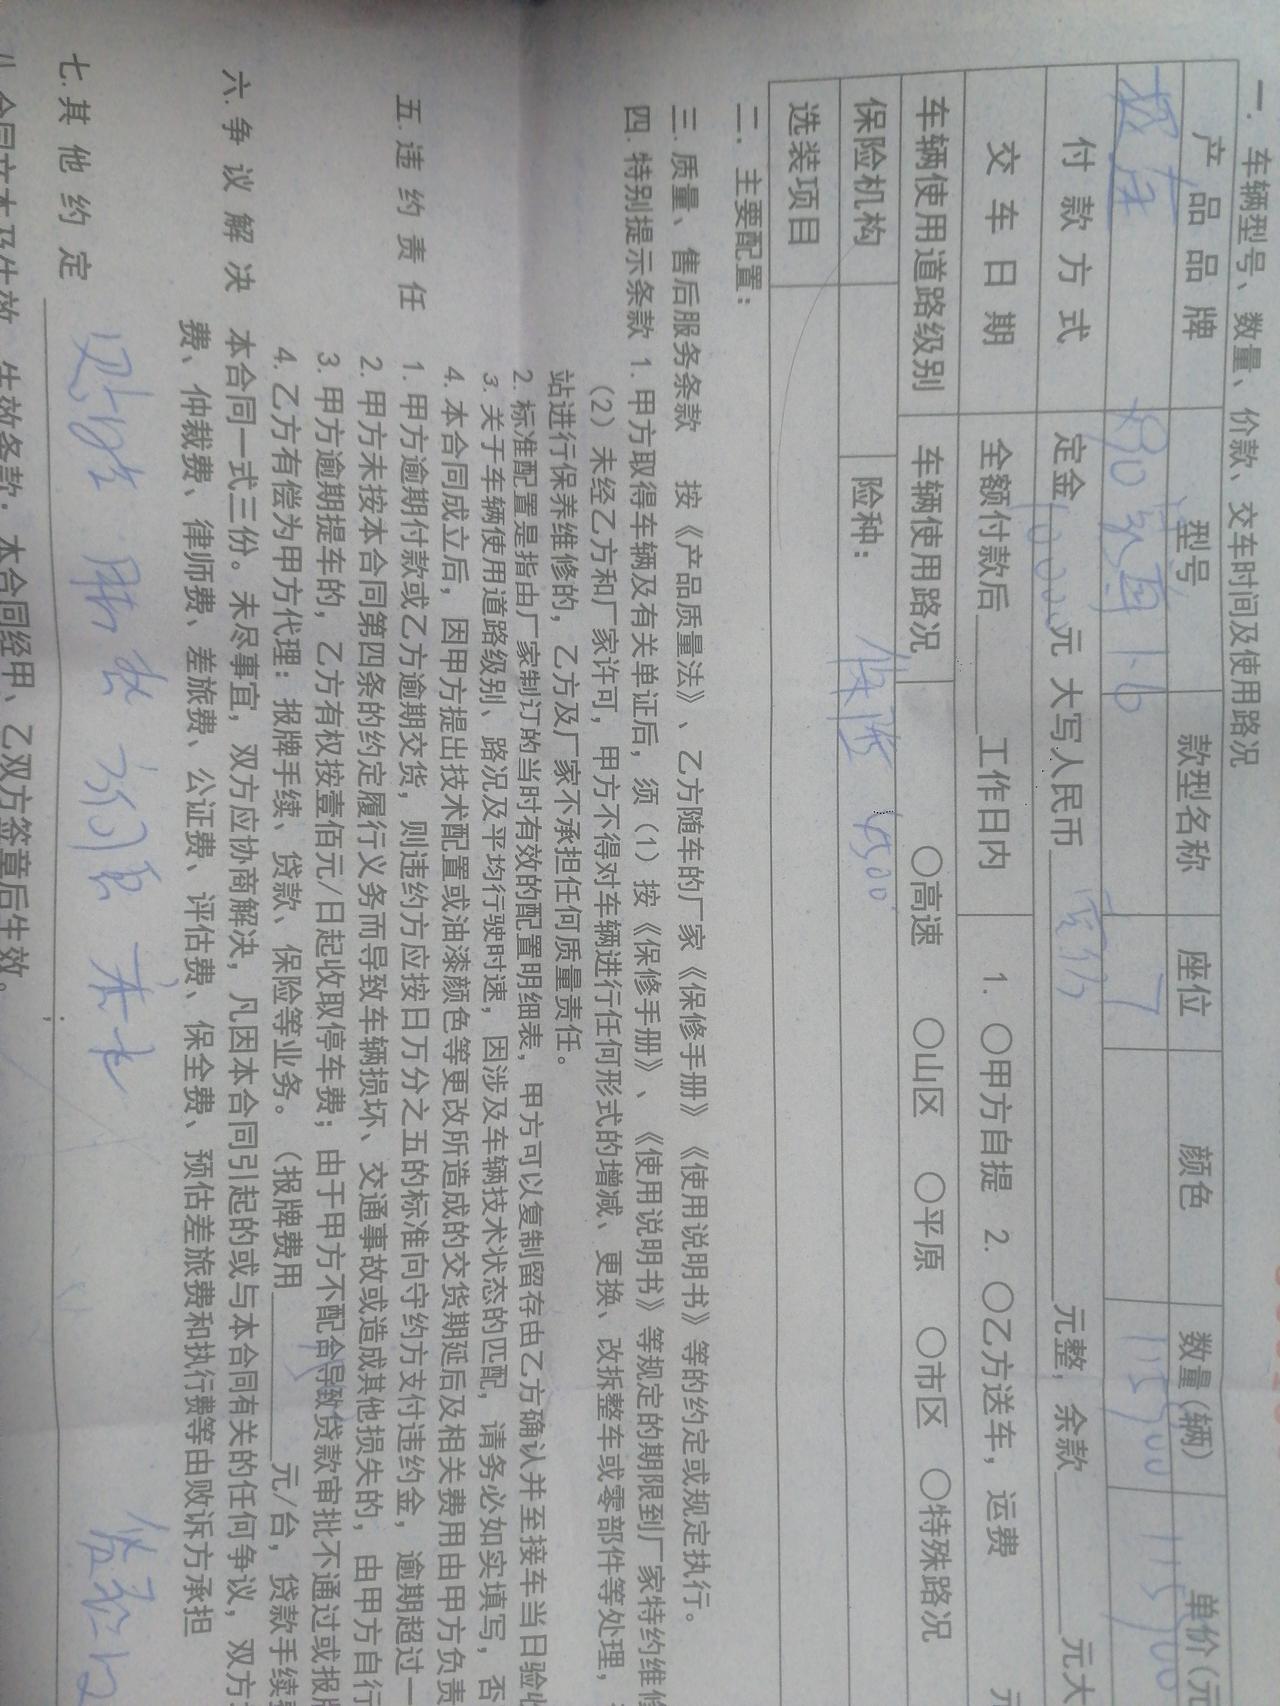 一. 车辆型号、数量、价款、交车时间及使用路况
产品品牌 型号 款型名称 座位 颜色 数量(辆) 单价(元
7 115900 115900
付款方式 定金10000元 大写人民币 元整, 余款 元大
交车日期 全额付款后 工作日内 1. ○甲方自提 2. ○乙方送车, 运费 元
车辆使用道路级别 车辆使用路况 ○高速 ○山区 ○平原 ○市区 ○特殊路况
保险机构 险种: 保险 6500
选装项目
二. 主要配置:
三. 质量、售后服务条款 按《产品质量法》、乙方随车的厂家《保修手册》《使用说明书》等的约定或规定执行。
四. 特别提示条款 1. 甲方取得车辆及有关单证后, 须 (1) 按《保修手册》、《使用说明书》等规定的期限到厂家特约维修
(2) 未经乙方和厂家许可, 甲方不得对车辆进行任何形式的增减、更换、改拆整车或零部件等处理,
站进行保养维修的, 乙方及厂家不承担任何质量责任。
2. 标准配置是指由厂家制订的当时有效的配置明细表, 甲方可以复制留存由乙方确认并至接车当日验收
3. 关于车辆使用道路级别、路况及平均行驶时速, 因涉及车辆技术状态的匹配, 请务必如实填写, 否
4. 本合同成立后, 因甲方提出技术配置或油漆颜色等更改所造成的交货期延后及相关费用由甲方负责
五. 违约责任 1. 甲方逾期付款或乙方逾期交货, 则违约方应按日万分之五的标准向守约方支付违约金, 逾期超过一
2. 甲方未按本合同第四条的约定履行义务而导致车辆损坏、交通事故或造成其他损失的, 由甲方自行
3. 甲方逾期提车的, 乙方有权按壹佰元/日起收取停车费; 由于甲方不配合导致贷款审批不通过或报牌
4. 乙方有偿为甲方代理: 报牌手续、贷款、保险等业务。(报牌费用 元/台, 贷款手续费
六. 争议解决 本合同一式三份。未尽事宜, 双方应协商解决, 凡因本合同引起的或与本合同有关的任何争议, 双方
费、仲裁费、律师费、差旅费、公证费、评估费、保全费、预估差旅费和执行费等由败诉方承担
七. 其他约定
八. 合同文本及生效 生效条款: 本合同经甲、乙双方签章后生效。